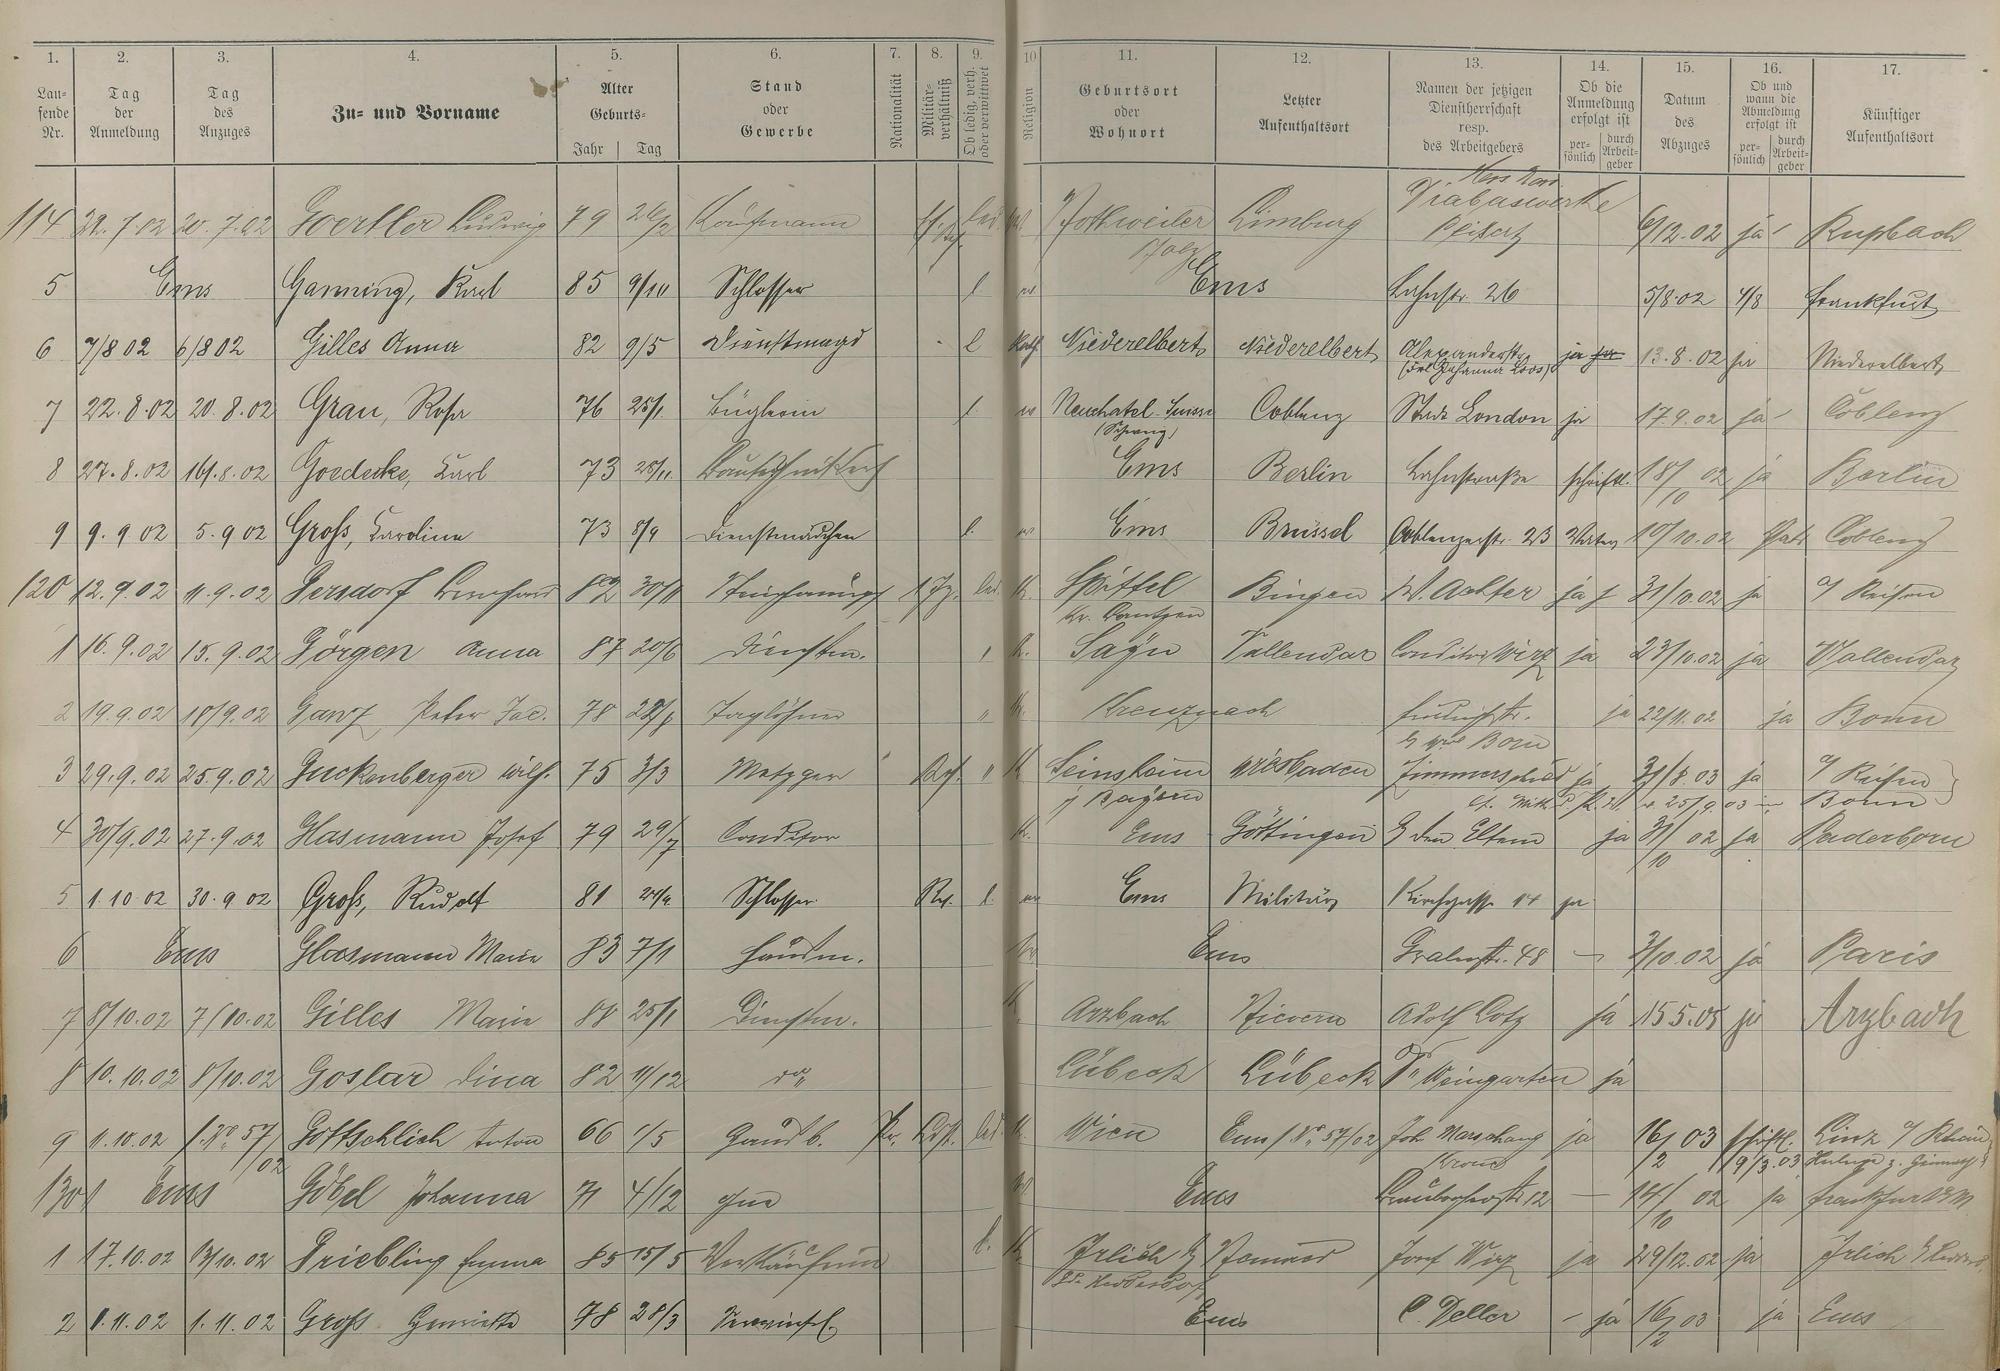 1. 2. 3. 4. 5. 6. 7. 8. 9. 10 11. 12. 13. 14. 15. 16. 17.
Lau-
fende
Nr.
Tag
der
Anmeldung
Tag
des
Anzuges
Zu- und Vorname
Alter
Geburts-
Jahr | Tag
Stand
oder
Gewerbe
Nationalität
Militär-
verhältniß
Ob ledig, verh.
oder verwittwet
Religion
Geburtsort
oder
Wohnort
Letzter
Aufenthaltsort
Namen der jetzigen
Dienstherrschaft
resp.
des Arbeitgebers
Ob die
Anmeldung
erfolgt ist
per-
sönlich
durch
Arbeit-
geber
Datum
des
Abzuges
Ob und
wann die
Abmeldung
erfolgt ist
per-
sönlich
durch
Arbeit-
geber
Künftiger
Aufenthaltsort
114 22.7.02 20.7.02 Goertler Ludwig 79 Kaufmann led. Limburg Diabaswerke 6/12.02 ja Rupbach
5 Ems Ganning, Karl 85 9/10 Schlosser l Ems Lahnstr. 26 5/8.02 4/8 Frankfurt
6 7/8 02 6/8 02 Gilles Anna 82 9/5 Dienstmagd l Kath. Niederelbert Niederelbert Alexanderstr. ja 13.8.02 ja Niederelbert
(Frl. Johanna Loos)
7 22.8.02 20.8.02 Grau, Rosa 76 25/1. Büglerin l Neuchatel Coblenz Stadt London ja 17.9.02 ja Coblenz
(Schweiz)
8 27.8.02 16/.8.02 Goedecke, Karl 73 Ems Berlin Lahnstraße schriftl. 18/10 02 ja Berlin
9 9.9 02 5.9 02 Groß, Karoline 73 8/9 Dienstmädchen l. Ems Brüssel Coblenzerstr. 23 10/10.02 Coblenz
120 12.9.02 11.9.02 Gersdorf 82 30/11 led. K. Spittel Bingen W. Achter ja 31/10.02 ja a/ Reisen
1 16.9.02 15.9.02 Görgen Anna 87 20/6 Dienstm. K. Sayn Vallendar Conditor Wirz ja 23/10.02 ja Vallendar
2 19.9.02 18/9.02 Ganz Peter Jac. 78 Taglöhner " Kreuznach ja 22/11.02 ja Bonn
3 29.9.02 25.9.02 Guckenberger Wilh. 75 3/3 Metzger Res. " K Seinsheim Wiesbaden Zimmerschied ja 31/8.03 ja a/ Reisen
i/ Bayern Bonn
4 30/9.02 27.9.02 Glasmann Josef 79 29/7 Conditor K. Ems Göttingen b/ den Eltern ja 31/10 02 ja Paderborn
5 1.10 02 30.9 02 Groß, Rudolf 81 Schlosser Res. l. Ems Militär Kirchgasse 14 ja
6 Ems Glasmann Maria 83 7/1 Hausm. Ems Grabenstr. 48 — 3/10.02 ja Paris
7 8/10.02 7/10.02 Gilles Maria 88 25/1 Dienstm. K. Arzbach Nievern Adolf Lotz ja 15 5.05 ja Arzbach
8 10.10.02 8/10.02 Goslar Dina 82 11/12 do. Lübeck Lübeck Dr. Weingarten ja
9 11.10.02 f. No 57/02 Gottschlich Anton 66 1/5 Hausb. Pr. Ldst. led. K. Wien Ems / No 57/02 Joh. Marschang ja 16/2 03 schriftl. Linz a/ Rhein
Krone 19/3.03
130 Ems Göbel Johanna 71 4/12 ohne Ems 12 — 14/10 02 ja Frankfurt a/M
1 17.10.02 13/10.02 Griebling Emma 85 15/5 Verkäuferin l. K. Irlich b/ Josef Wirz ja 29/12.02 ja Irlich b/ Neuwied
2 1.11.02 1.11.02 Groß Henriette 78 28/3 Ems C. Deller – ja 16/2 03 ja Ems